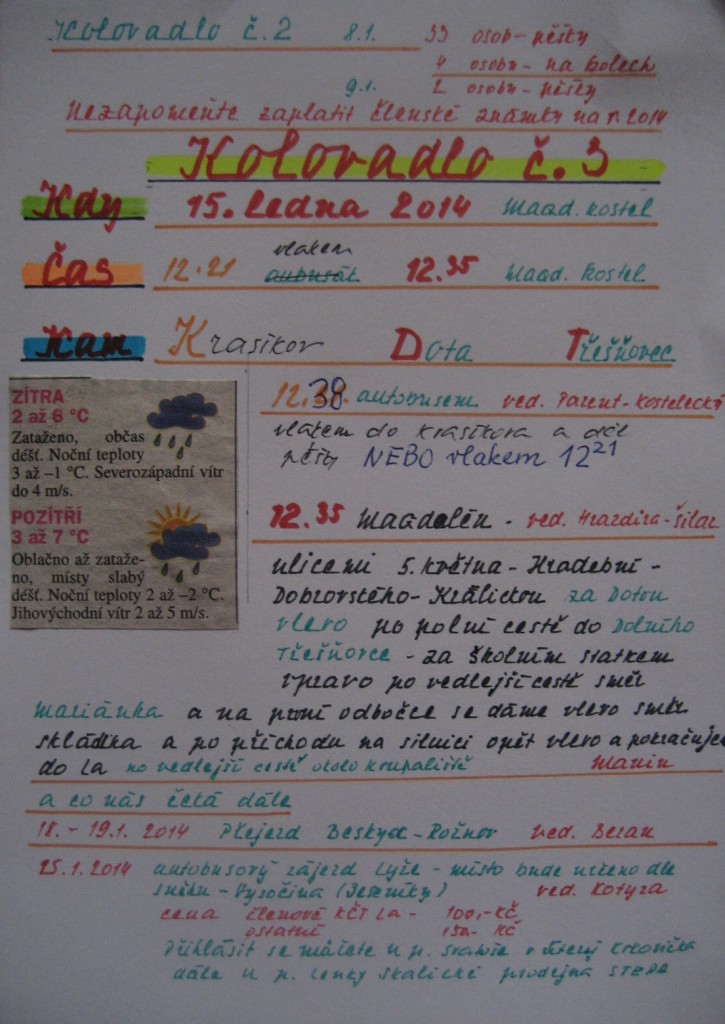 Kolovadlo č.2 8.1. 33 osob - pěšky
4 osoby - na kolech
9.1. 2 osoby - pěšky
Nezapomeňte zaplatit členské známky na r. 2014
Kolovadlo č.3
Kdy 15. ledna 2014 Magd. kostel
Čas 12.21 vlakem autobusář 12.35 Magd. kostel
Kam Krasíkov Dota Třešňovec
ZÍTRA
2 až 6 °C
Zataženo, občas
déšť. Noční teploty
3 až –1 °C. Severozápadní vítr
do 4 m/s.
POZÍTŘÍ
3 až 7 °C
Oblačno až zataže-
no, místy slabý
déšť. Noční teploty 2 až –2 °C.
Jihovýchodní vítr 2 až 5 m/s.
12.38 autobusem ved. Parent - Kostelecký
vlakem do Krasíkova a dál
pěšky NEBO vlakem 12 21
12.35 Magdalén - ved. Hrazdira - Šilar
ulicemi 5. května - Hradební -
Dobrovského - Králickou za Dotou
vlevo po polní cestě do Dolního
Třešňovce - za školním statkem
vpravo po vedlejší cestě směr
Mariánka a na první odbočce se dáme vlevo směr
skládka a po příchodu na silnici opět vlevo a pokračuje
do La po vedlejší cestě okolo koupaliště Manin
a co nás čeká dále
18. - 19.1. 2014 Přejezd Beskyd - Rožnov ved. Beran
25.1.2014 autobusový zájezd Lyže - místo bude určeno dle
sněhu - Vysočina (Jeseníky) ved. Kotyza
cena členové KČT La - 100,- Kč
ostatní 150- Kč
Přihlásit se můžete u p. v úterý
dále u p. Lenky Skalické prodejna STEPA